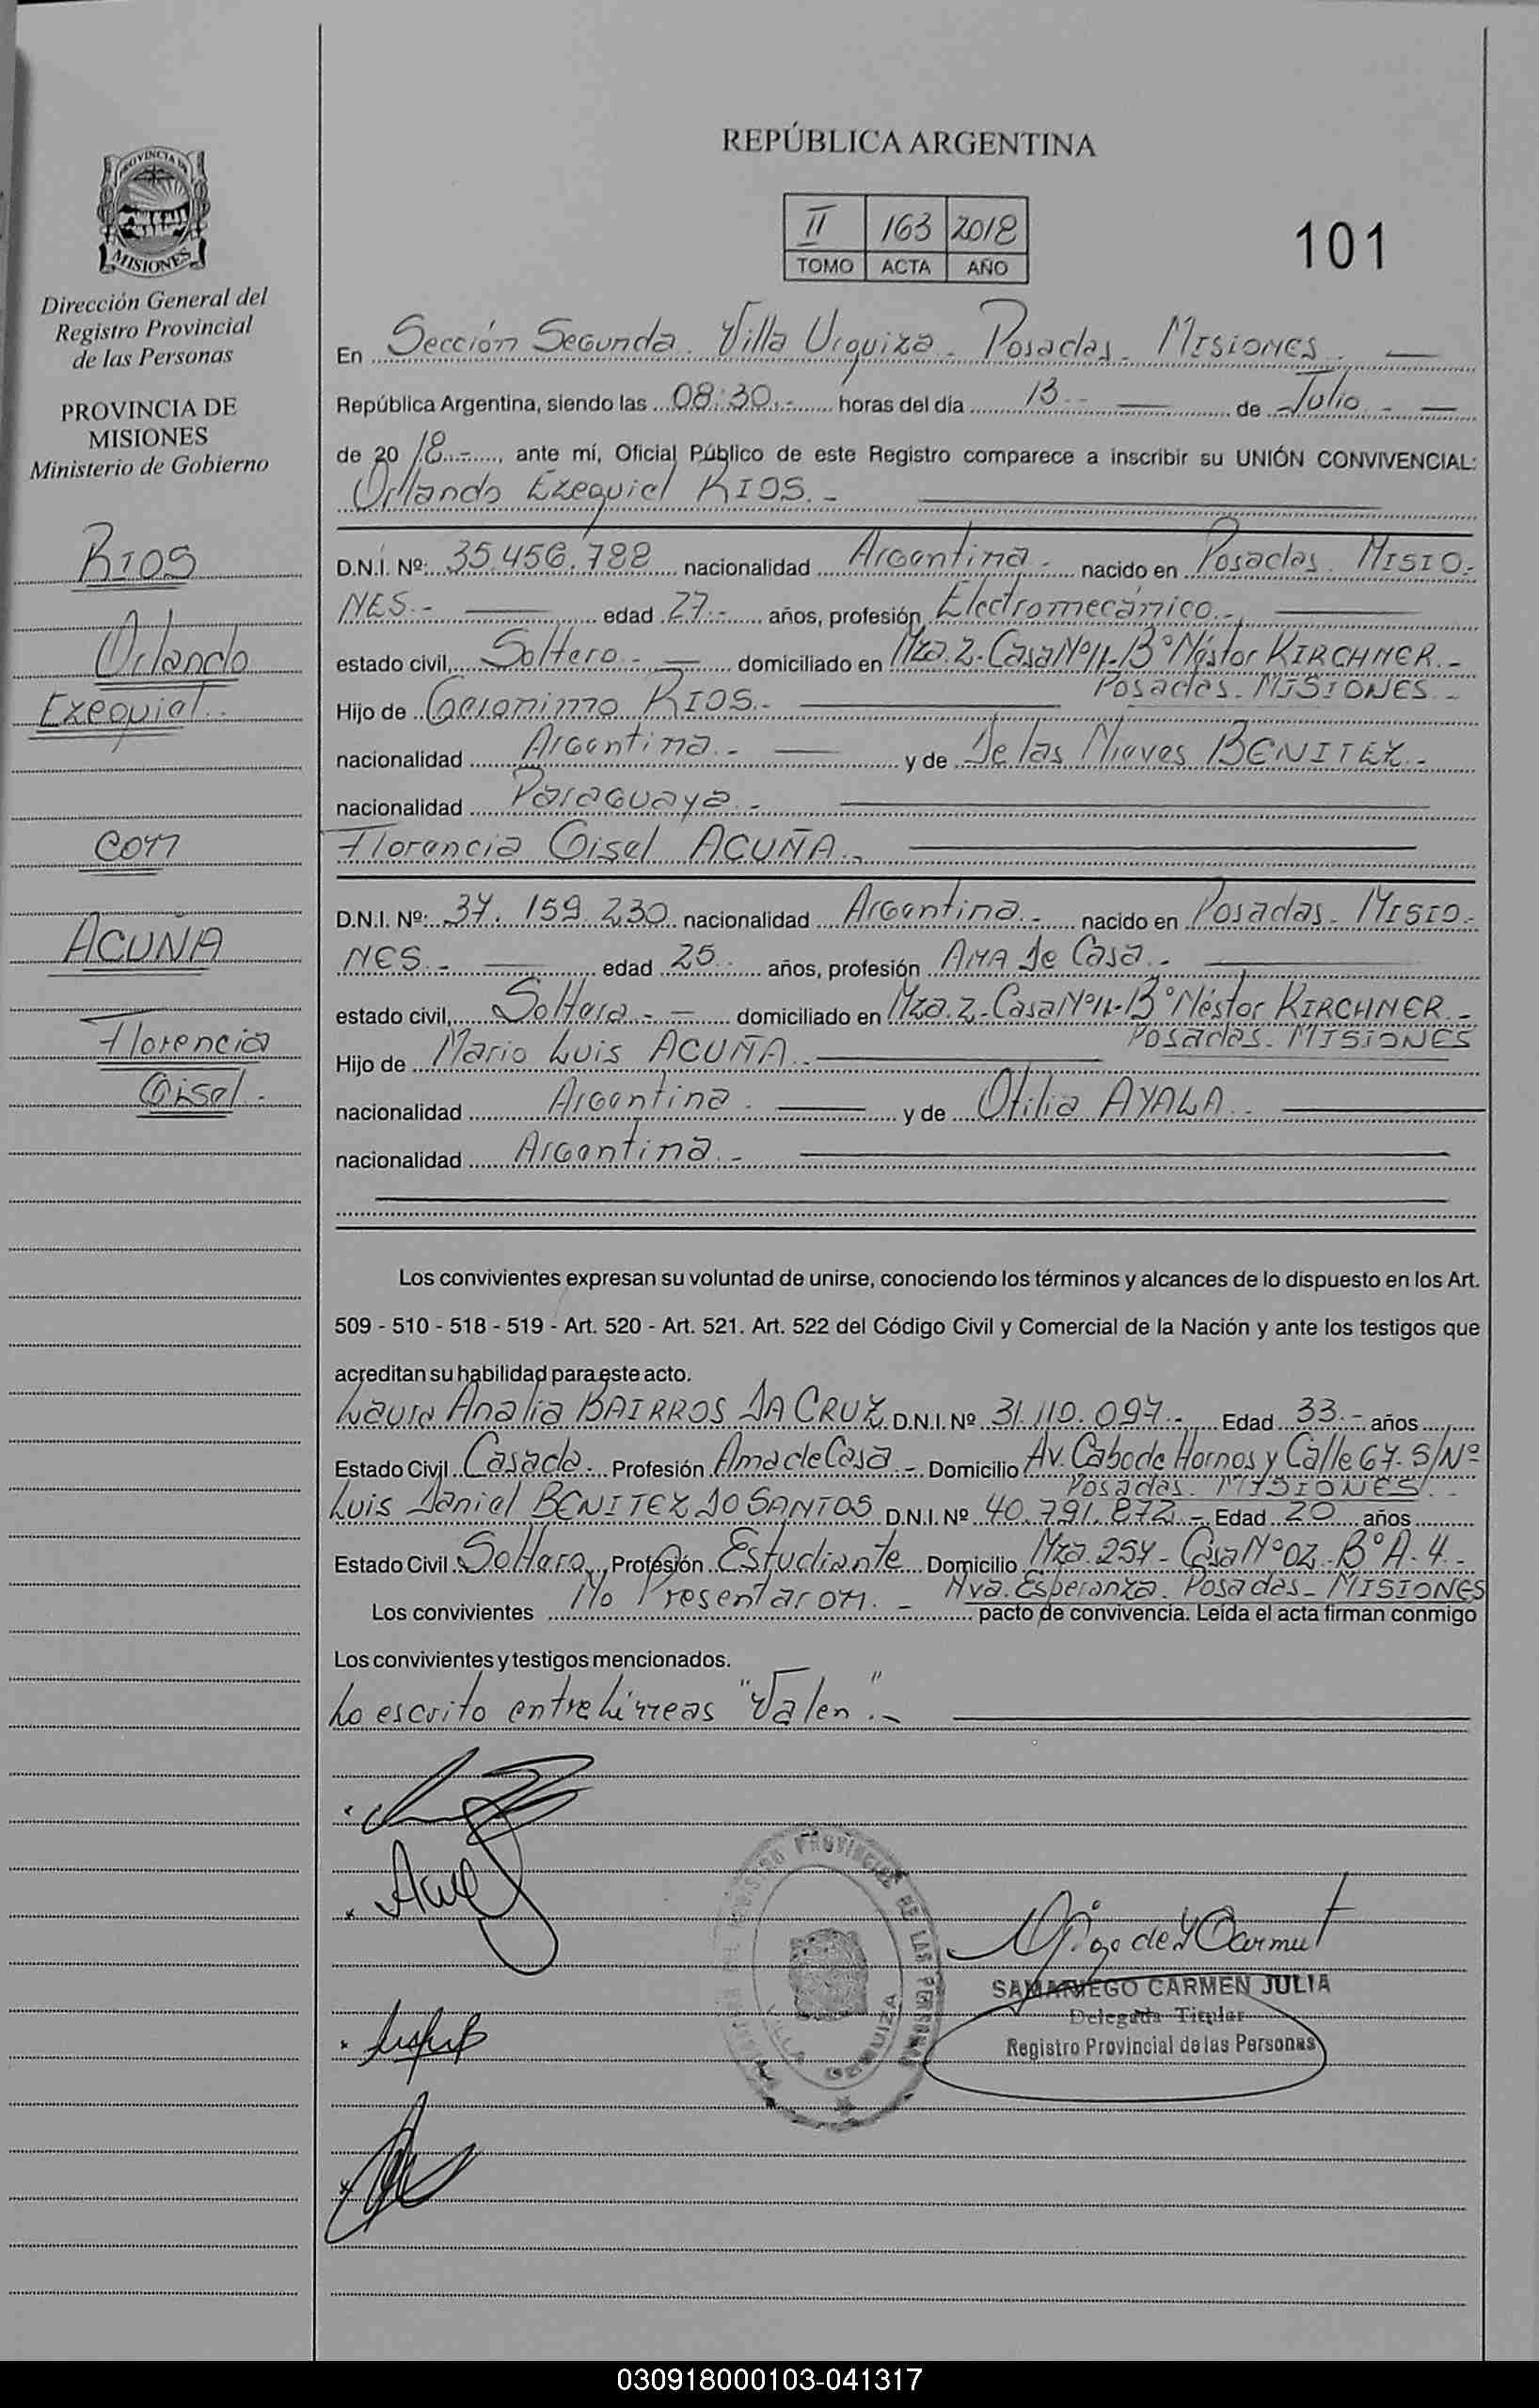 PROVINCIA DE
MISIONES
Dirección General del
Registro Provincial
de las Personas
PROVINCIA DE
MISIONES
Ministerio de Gobierno
RIOS
Orlando
Exequiel.
con
ACUÑA
Florencia
Gisel.-
REPÚBLICA ARGENTINA
II 163 2018
TOMO ACTA AÑO
101
En Sección Segunda. Villa Urquiza - Posadas - MISIONES.
República Argentina, siendo las 08:30.- horas del día 13.- de Julio.-
de 2018.-, ante mí, Oficial Público de este Registro comparece a inscribir su UNIÓN CONVIVENCIAL:
Orlando Exequiel RIOS.-
D.N.I. Nº: 35.456.788 nacionalidad Argentina.- nacido en Posadas. MISIO-
NES.- edad 27.- años, profesión Electromecánico.-
estado civil, Soltero.- domiciliado en Mza. Z-Casa Nº11-Bº Néstor KIRCHNER.-
Posadas - MISIONES.-
Hijo de Geronimo RIOS.-
nacionalidad Argentina.- y de De las Nieves BENITEZ.-
nacionalidad Paraguaya.-
Florencia Gisel ACUÑA.-
D.N.I. Nº: 37.159.230 nacionalidad Argentina.- nacido en Posadas - MISIO-
NES.- edad 25 años, profesión AMA de Casa.-
estado civil, Soltera.- domiciliado en Mza. Z-Casa Nº11-Bº Néstor KIRCHNER.-
Posadas - MISIONES
Hijo de Mario Luis ACUÑA.-
nacionalidad Argentina.- y de Otilia AYALA.-
nacionalidad Argentina.-
Los convivientes expresan su voluntad de unirse, conociendo los términos y alcances de lo dispuesto en los Art.
509 - 510 - 518 - 519 - Art. 520 - Art. 521. Art. 522 del Código Civil y Comercial de la Nación y ante los testigos que
acreditan su habilidad para este acto.
Laura Analia BAIRROS DA CRUZ D.N.I. Nº 31.110.097.- Edad 33.- años
Estado Civil Casada.- Profesión Ama de Casa.- Domicilio Av. Cabo de Hornos y Calle 67. S/Nº
Posadas. MISIONES.-
Luis Daniel BENITEZ DO SANTOS D.N.I. Nº 40.791.872.- Edad 20 años
Estado Civil Soltero, Profesión Estudiante Domicilio Mza. 254 - Casa Nº02 - Bº A-4 -
Nva. Esperanza. Posadas - MISIONES
Los convivientes No Presentaron.- pacto de convivencia. Leída el acta firman conmigo
Los convivientes y testigos mencionados.
Lo escrito entre líneas "Valen".-
REGISTRO PROVINCIAL DE LAS PERSONAS
VILLA URQUIZA
SAMANIEGO CARMEN JULIA
Delegada Titular
Registro Provincial de las Personas
030918000103-041317